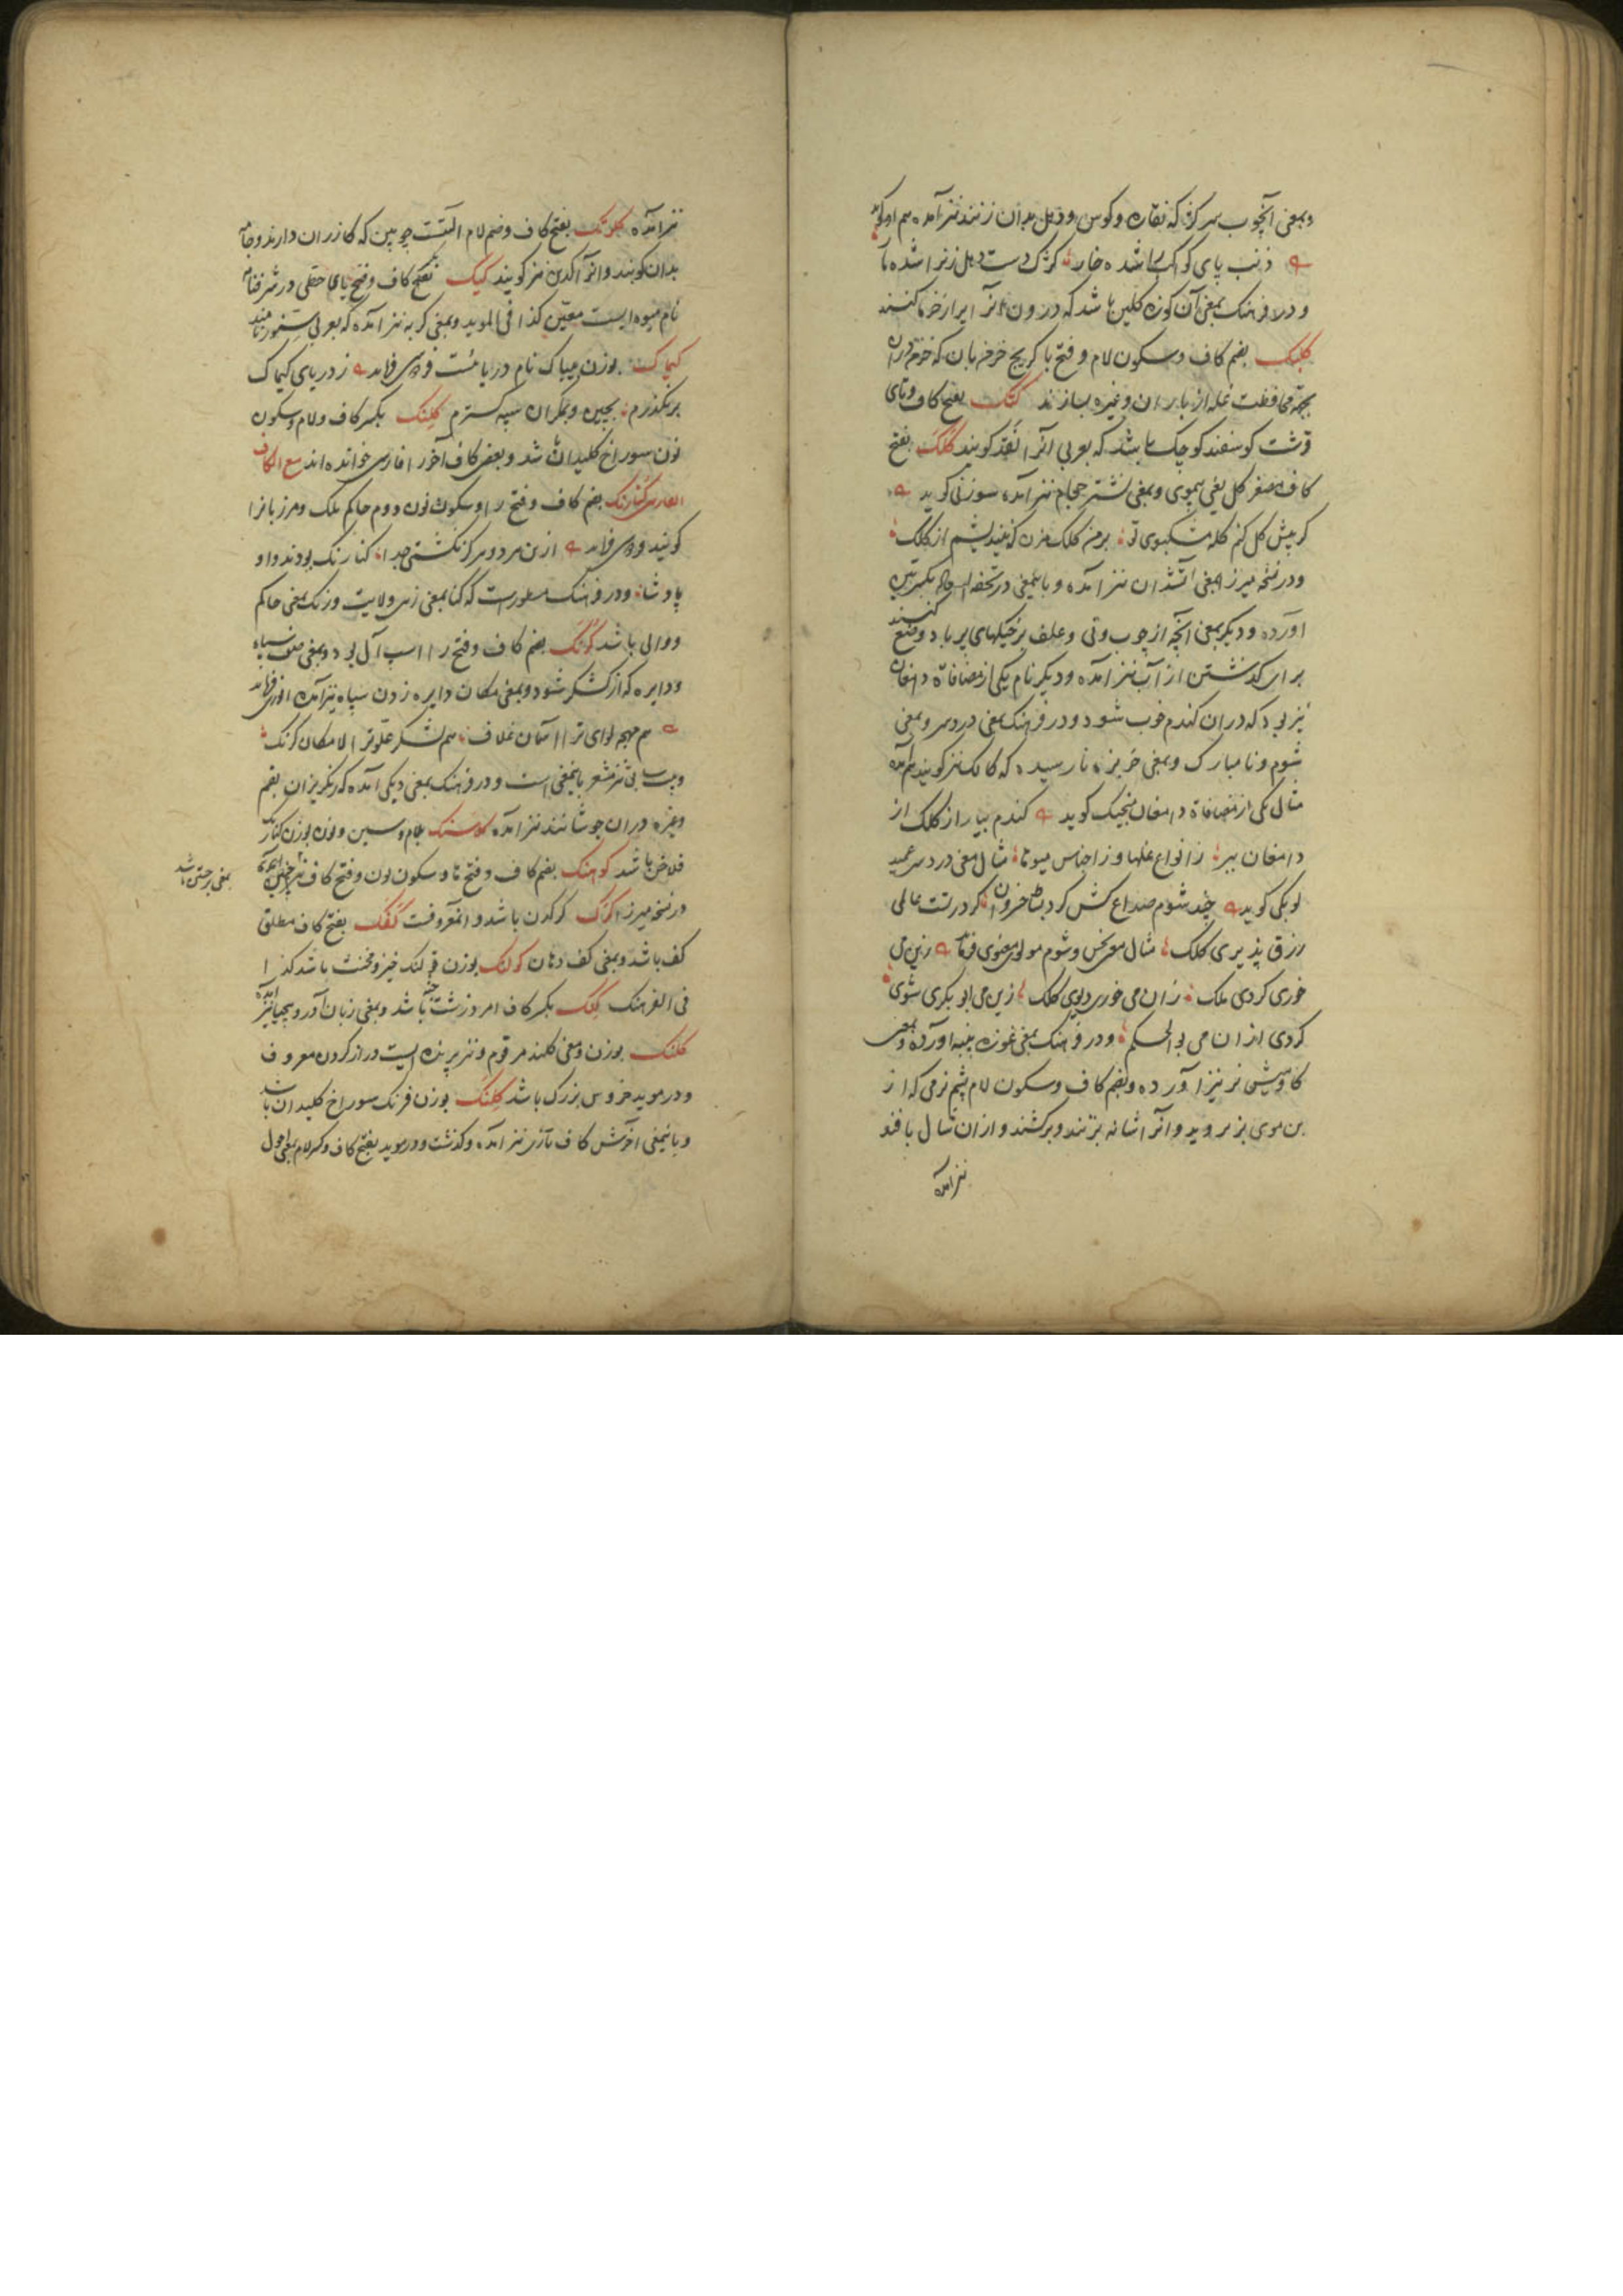 و بمعنی آنچوب سر کژ که نقاره و کوس و دهل بدان زنند نیز آمده هم او گوید
ذنب پای کوکب شده خار کژک دست دهل زن را شده مار
و در فرهنگ بمعنی آن کوزه گلین باشد که درون آنرا پر از خرما کنند
کلبک بضم کاف و سکون لام و فتح با کریج خرمنبان که
بجهة محافظت غله از باران و غیره سازند کتک بفتح کاف و تای
قرشت گوسفند کوچک باشد که بعربی آنرا نقد گویند کلک بفتح
کاف مصغر کل یعنی بیموی و بمعنی نشتر حجام نیز آمده سوزنی گوید
گر پیش کل کنم کله مشکبوی تو بر من کلک مزن که پشم از کلک
و در نسخه میرزا بمعنی آتشدان نیز آمده و باینمعنی در تحفه بکسرتین
آورده و دیگر بمعنی آنچه از چوب و نی و علف بر خیکهای پر باد وضع کنند
برای گذشتن از آب نیز آمده و دیگر نام یکی از مضافات دامغان
نیز بود که در آن گندم خوب شود و در فرهنگ بمعنی دردسر و بمعنی
شوم و نامبارک و بمعنی خربزه نارسیده که کالک نیز گویند هم آمده
مثال یکی از مضافات دامغان منجیک گوید گندم بیار از کلک از
دامغان ببر ز انواع غلها و ز اجناس میوها مثال معنی دردسر عمید
لوبکی گوید چند شوم صداع کش گرد بساط خسروان کرد درست عالمی
رزق پذیری کلک مثال معنی نحس و شوم مولوی معنوی فرماید زین می
خوری گردی ملک زان می خوری دیوی کلک زین می ابوبکری شوی
گردی از آن می بوالحکم و در فرهنگ بمعنی غوزه پنبه آورده و بمعنی
گاومیش نر نیز آورده و بضم کاف و سکون لام پشم نرمی که از
بن موی بز بروید و آنرا بشانه بزنند و برکشند و از آن شال بافند
نیز آمده
نیز آمده کلوتک بفتح کاف و ضم لام آلتیست چوبین که گازران دارند و جامه
بدان کوبند و آنرا کدین نیز گویند کیک بفتح کاف و فتح یای حطی در شرفنامه
نام میوه ایست معین کذا فی المؤید و بمعنی گربه نیز آمده که بعربی سنور نامند
کیماک بوزن میناک نام دریائیست فردوسی فرماید ز دریای کیماک
بر بگذرم بچین و بمکران سپه گسترم کلنک بکسر کاف و لام و سکون
نون سوراخ کلیدان باشد و بعضی کاف آخر را فارسی خوانده اند مع الکاف
الفارسی کنارنگ بضم کاف و فتح را و سکون نون دوم حاکم ملک و مرزبان را
گویند فردوسی فرماید ازین هر دو هرگز نگشتی جدا کنارنگ بودند و او
پادشا و در فرهنگ مسطور است که کنا بمعنی زمین و ولایت و رنگ بمعنی حاکم
و والی باشد کرنگ بضم کاف و فتح را اسب آل بود و بمعنی صف سپاه
و دایره که از لشکر شود و بمعنی مکان دایره زدن سپاه نیز آمده انوری فرماید
هم مهچه لوای ترا آسمان غلاف هم لشکر علو ترا لامکان کرنگ
و بیت نیز مشعر باینمعنی است و در فرهنگ بمعنی دیگی آمده که رنگریزان بقم
و غیره در آن جوشانند نیز آمده کلاسنگ بلام و سین و نون بوزن کنارنگ
فلاخن باشد کوهنگ بضم کاف و فتح ها و سکون نون و فتح کاف
در نسخه میرزا کرگ کرگدن باشد و این معروفست کفک بفتح کاف مطلق
کف باشد و بمعنی کف دهان کولنگ بوزن لنگ حیز و مخنث باشد کذا
فی الفرهنگ کلک بکسر کاف امرود زشت باشد و بمعنی زبان آور و بیحیا نیز آمده
کلنگ بوزن و معنی کلند مرقوم و نیز پرنده ایست دراز گردن معروف
و در مؤید خروس بزرگ باشد کلنگ بوزن فرنگ سوراخ کلیدان باشد
و باینمعنی آخرش کاف تازی نیز آمده و گذشت و در مؤید بفتح کاف و کسر لام بمعنی احول
بمعنی برجستن باشد